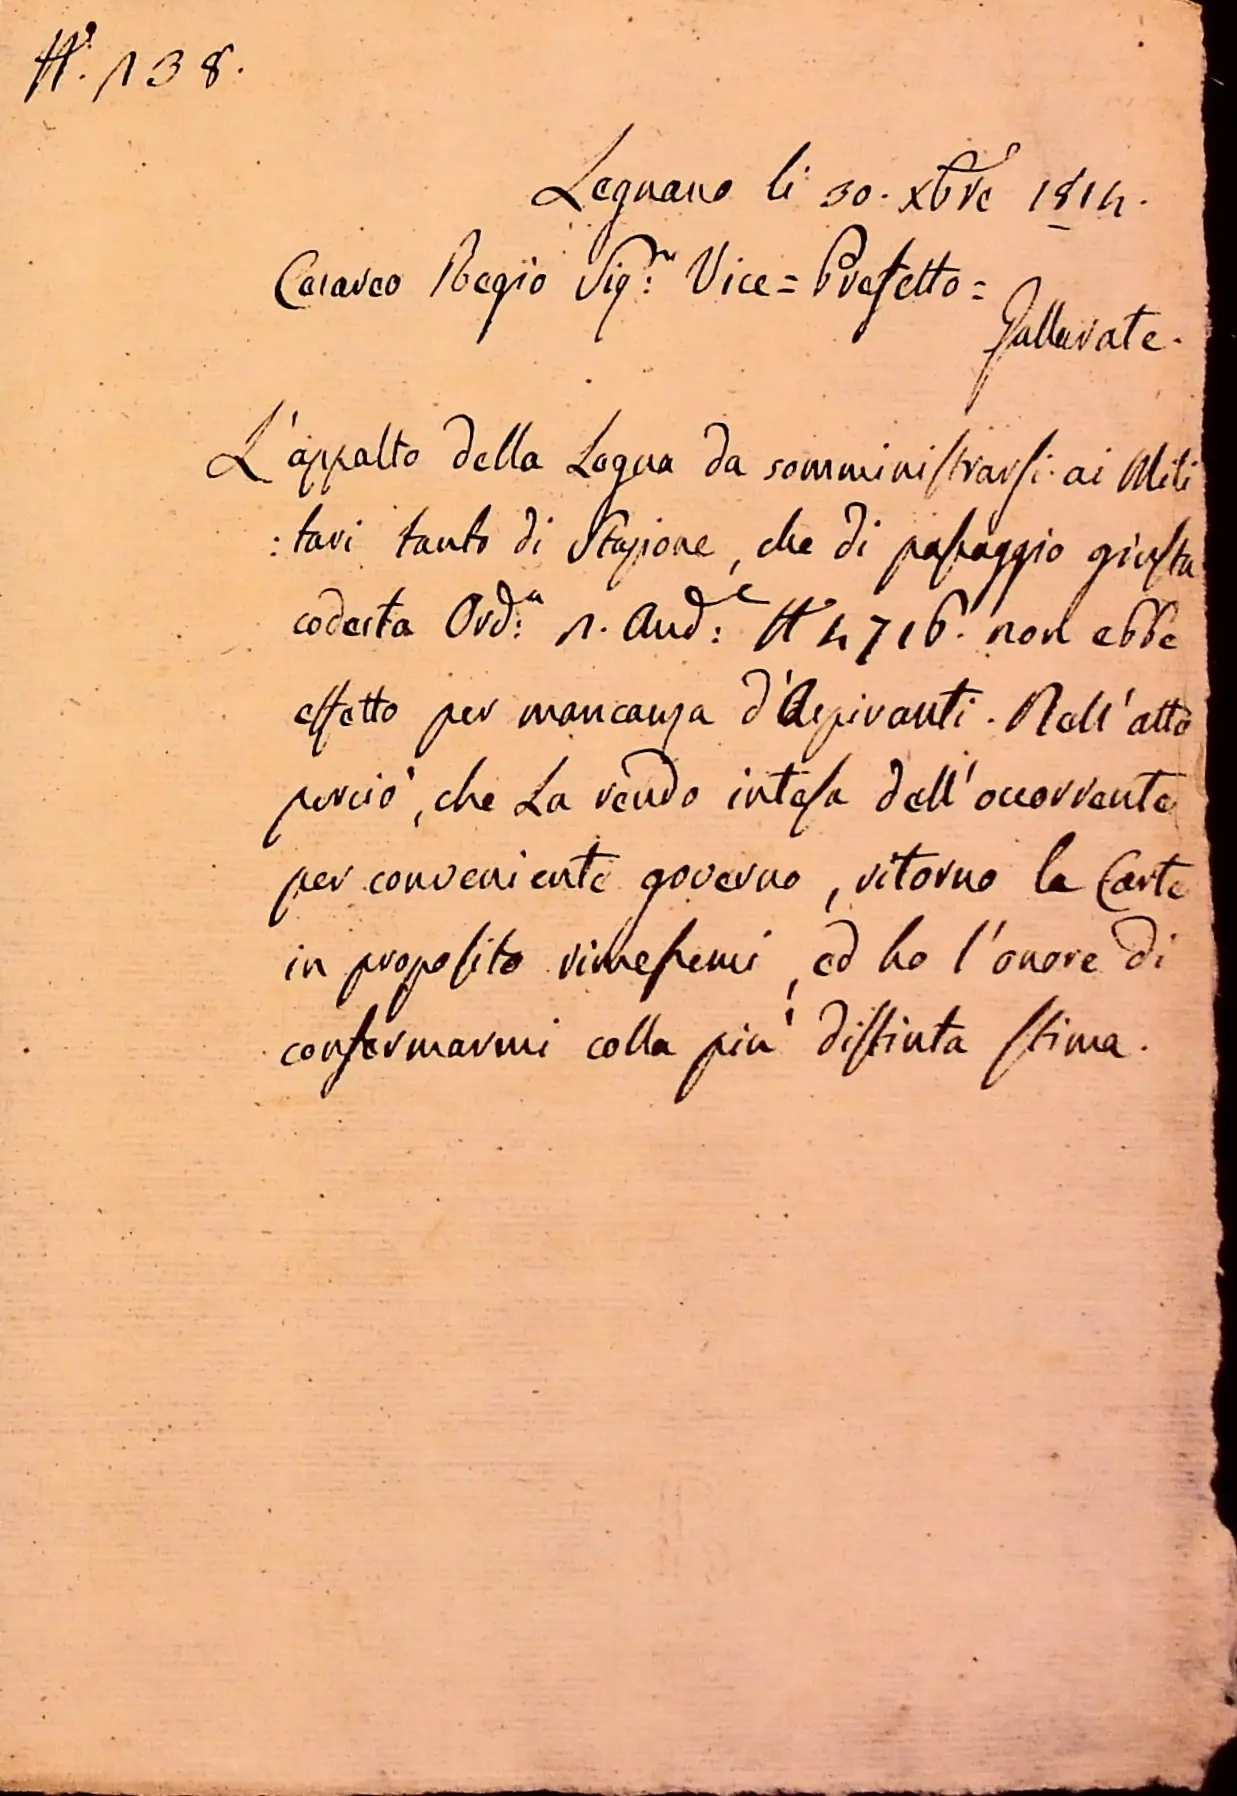 N.° 138.
Legnano li 30. Xbre 1814.
Cesareo Regio Sig.r Vice=Prefetto=
Gallarate.
L'appalto della Legna da somministrarsi ai Mili
:tari tanto di Stazione, che di passaggio giusta
codesta Ord:a 1. And:e N 4716. non ebbe
effetto per mancanza d'Aspiranti. Nell'atto
perciò, che La rendo intesa dell'occorrente
per conveniente governo, ritorno le Carte
in proposito rimessemi, ed ho l'onore di
confermarmi colla più distinta stima.